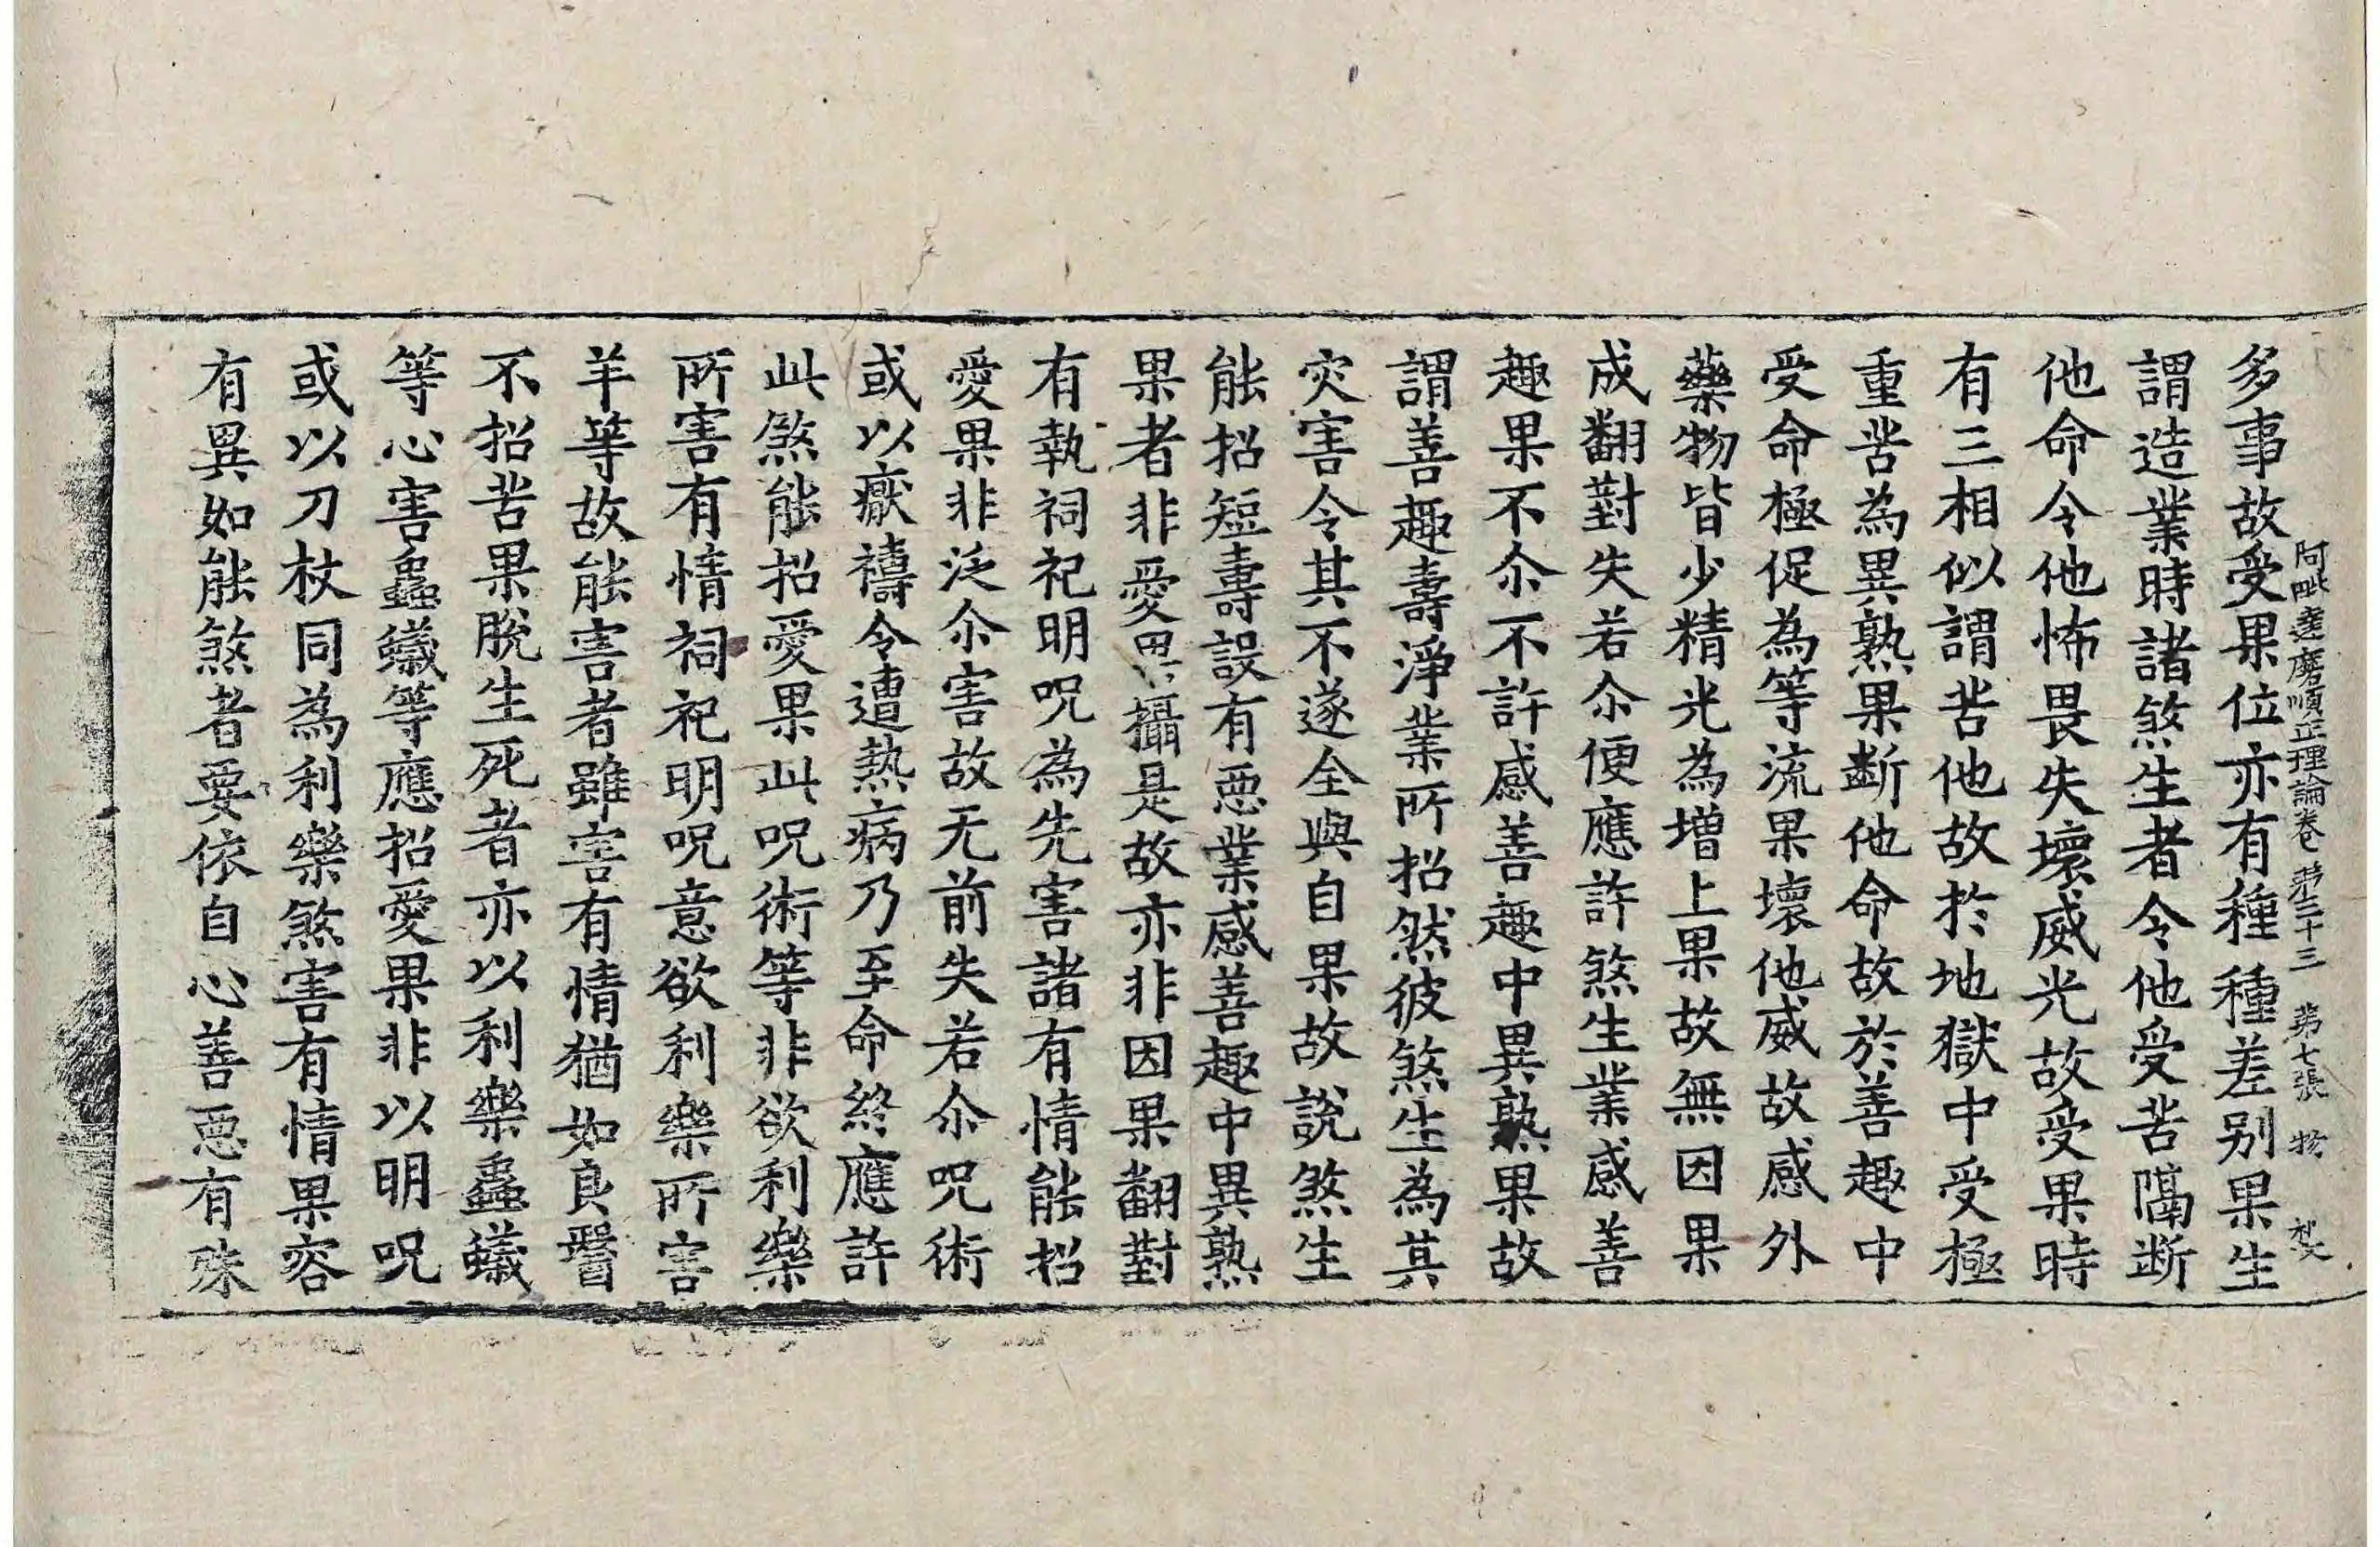 阿毗達磨順正理論卷第三十三 第七張 物
多事故受果位亦有種種差别果生
謂造業時諸煞生者令他受苦隔断
他命令他怖畏失壞威光故受果時
有三相似謂苦他故於地獄中受極
重苦為異熟果斷他命故於善趣中
受命極促為等流果壞他威故感外
藥物皆少精光為增上果故無因果
成翻對失若尒便應許煞生業感善
趣果不尒不許感善趣中異熟果故
謂善趣壽淨業所招然彼煞生為其
灾害令其不遂全與自果故說煞生
能招短壽設有惡業感善趣中異熟
果者非愛果攝是故亦非因果翻對
有執祠祀明呪為先害諸有情能招
愛果非泛尒害故无前失若尒呪術
或以厭禱令遭熱病乃至命終應許
此煞能招愛果此呪術等非欲利樂
所害有情祠祀明呪意欲利樂所害
羊等故能害者雖害有情猶如良毉
不招苦果脫生死者亦以利樂蟲蟻
等心害蟲蟻等應招愛果非以明呪
或以刀杖同為利樂煞害有情果容
有異如能煞者要依自心善惡有殊